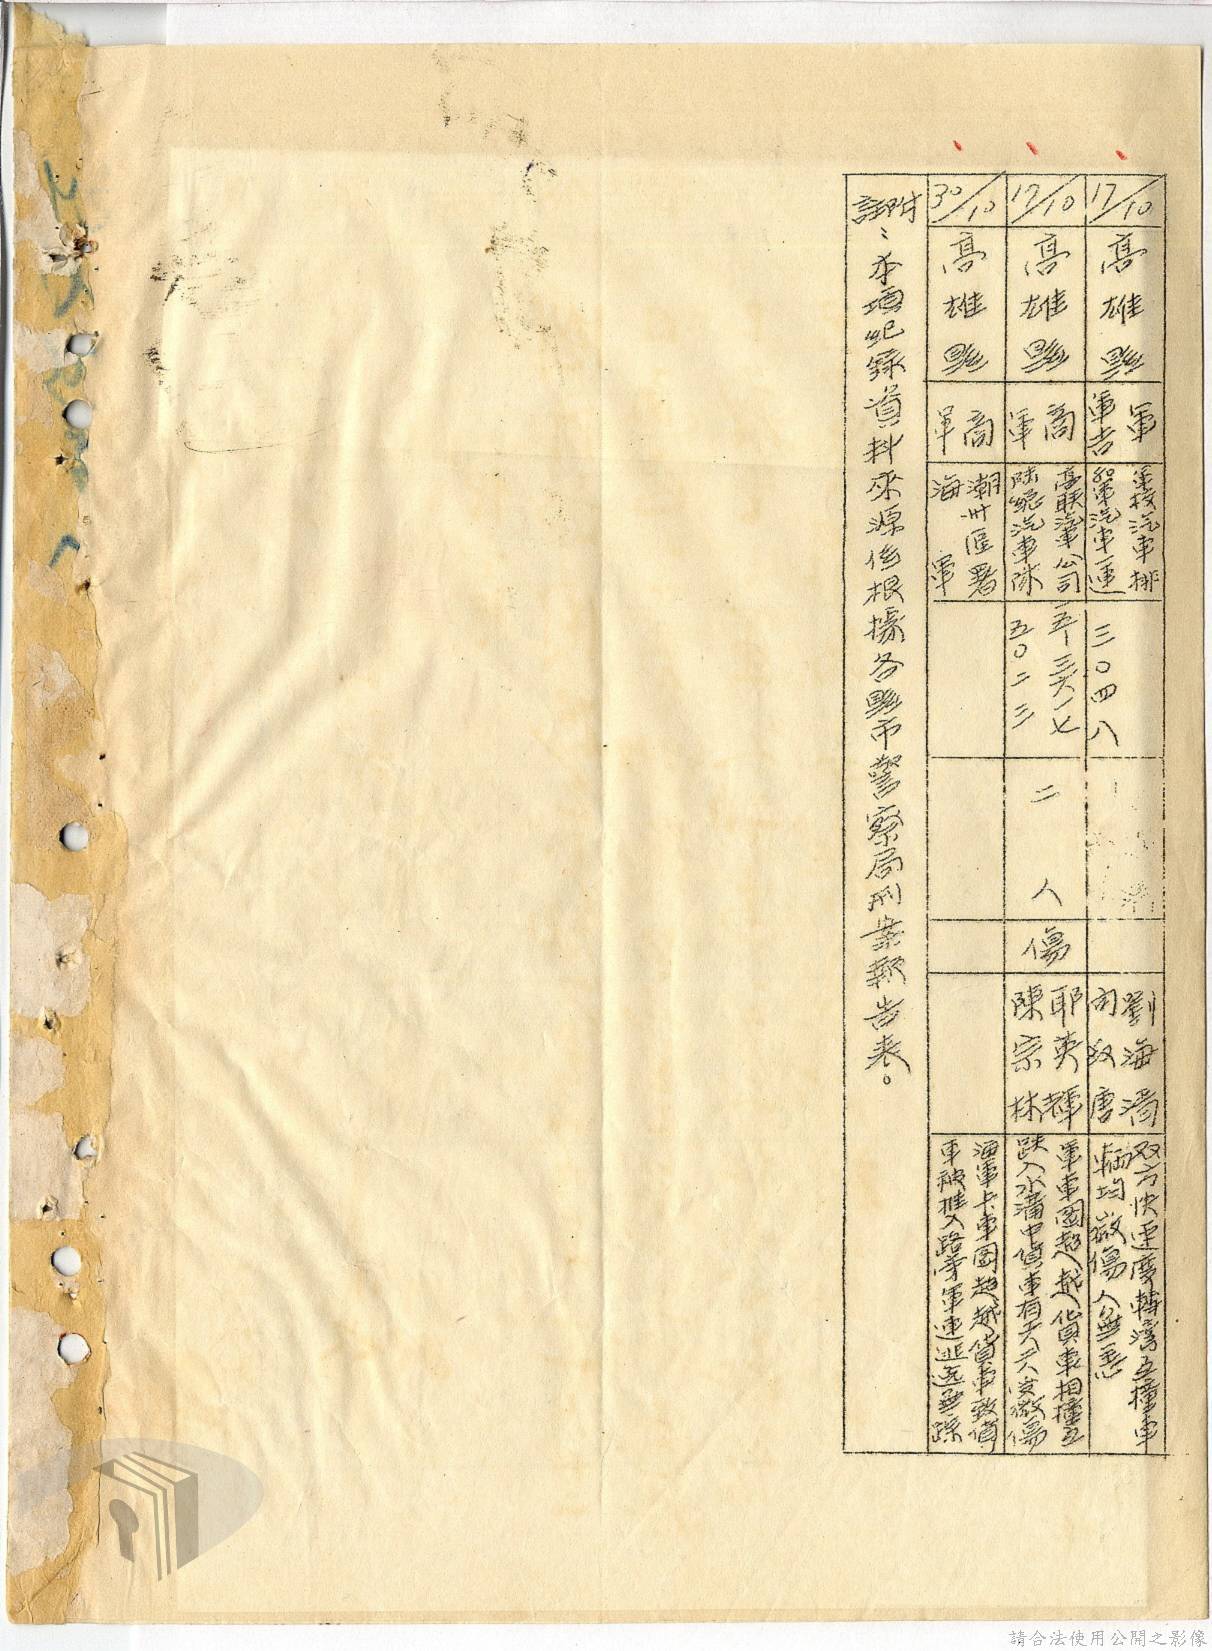 17/10
高雄縣
軍
軍吉
軍校汽車排
軍汽車連
三〇四八
劉海濤
唐
双方快速度轉灣互撞車
輛均微傷人無恙
17/10
高雄縣
商
軍
高联汽車公司
陸總汽車隊
一五—三六一七
五〇二三
二人
傷
耶英輝
陳宗林
軍車因超越貨車相撞互
跌入水溝中貨車有微傷
30/10
高雄縣
商
軍
潮州區署
海軍
海軍卡車因超越貨車致貨
車被推入路旁軍車逃逸無踪
附註：本項紀錄資料來源係根據各縣市警察局刑案報告表。
請合法使用公開之影像